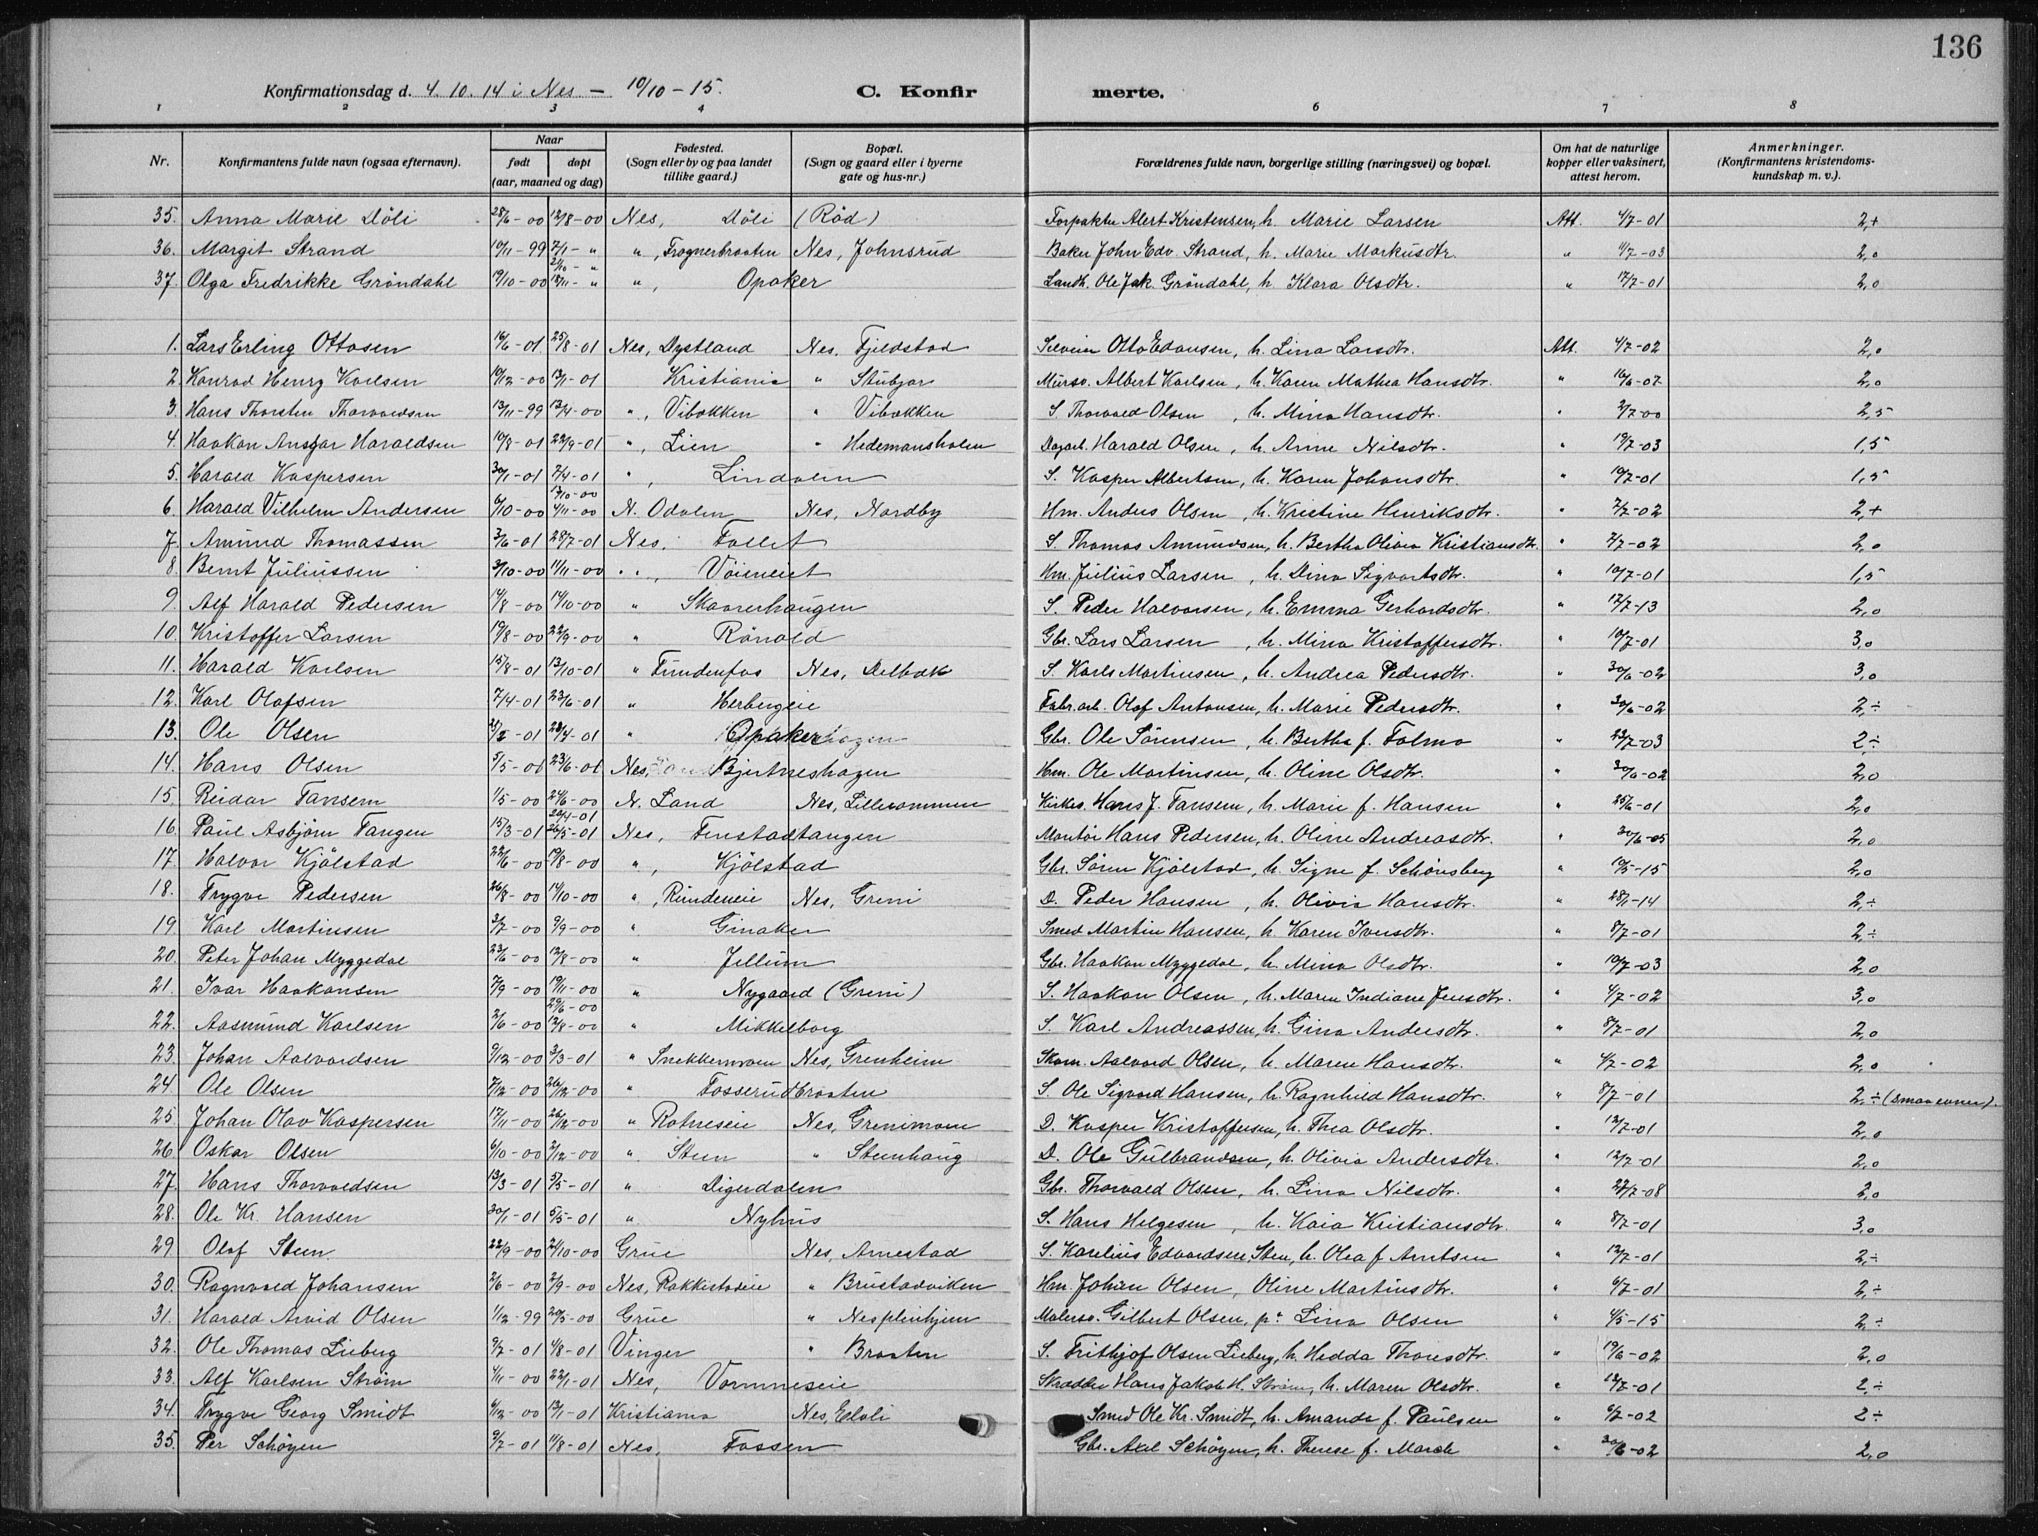 136
Konfirmationsdag d. 4.10.14 i Nes — 10/10 - 15. C. Konfirmerte.
1 2 3 4 6 7 8
Nr. Konfirmantens fulde navn (ogsaa efternavn). Naar født døpt (aar, maaned og dag) Fødested. (Sogn eller by og paa landet tillike gaard.) Bopæl. (Sogn og gaard eller i byerne gate og hus-nr.) Forældrenes fulde navn, borgerlige stilling (næringsvei) og bopæl. Om hat de naturlige kopper eller vaksinert, attest herom. Anmerkninger. (Konfirmantens kristendomskundskap m. v.).
35. Anna Marie Döli 28/6-00 12/8-00 Nes, Döli (Röd) Forpakter Alert Kristensen, h. Marie Larsen Att. 4/7-01 2,+
36. Margit Strand 10/11-99 7/1-" ", Frognerbraaten Nes, Johnsrud Baker John Edv. Strand, h. Marie Markusdtr. " 4/7-03 2,0
37. Olga Fredrikke Gröndahl 19/10-00 18/11-" ", Opaker Landh. Ole Jak. Gröndahl, h. Klara Olsdtr. " 17/7-01 2,0
1. Lars Erling Ottosen 16/6-01 25/8-01 Nes, Dystland Nes, Fjeldstad Otto Edvansen, h. Lina Larsdtr. Att. 4/7-02 2,0
2. Konrad Henry Karlsen 10/12-00 13/1-01 Kristiania " Stubjar Mursv. Albert Karlsen, h. Karen Mathea Hansdtr. " 16/6-07 2,0
3. Hans Thorsten Thorvaldsen 13/11-99 13/4-00 ", Vibakken " Vibakken S. Thorvald Olsen, h. Mina Hansdtr. " 2/7-00 2,5
4. Haakon Ansgar Haraldsen 10/8-01 22/9-01 ", Lien " Hedemansholen Dagarb. Harald Olsen, h. Anne Nilsdtr. " 19/7-03 1,5
5. Harald Kaspersen 30/1-01 7/4-01 ", Lindalen S. Kasper Albertsen, h. Karen Johansdtr. " 10/7-01 1,5
6. Harald Vilhelm Andersen 6/10-00 13/10-00 4/11-00 N. Odalen Nes, Nordby Hm. Anders Olsen, h. Kristine Henriksdtr. " 7/7-02 2,+
7. Amund Thomassen 3/6-01 28/7-01 Nes, Follet S. Thomas Amundsen, h. Bertha Olivia Kristiansdtr. " 7/7-02 2,0
8. Bernt Juliussen 3/10-00 11/11-00 " Hm. Julius Larsen, h. Dina Sigvartsdtr. " 10/7-01 1,5
9. Alf Harald Pedersen 14/8-00 14/10-00 " Skaarerhaugen S. Peder Halvorsen, h. Emma Gerhardsdtr. " 17/7-13 2,0
10. Kristoffer Larsen 19/8-00 22/9-00 " Rånald Gbr. Lars Larsen, h. Mina Kristoffersdtr. " 10/7-01 3,0
11. Harald Karlsen 15/8-01 13/10-01 " Fundenfos Nes, Delbak S. Karls Martinsen, h. Andrea Pedersdtr. " 30/6-02 3,0
12. Karl Olafsen 7/4-01 23/6-01 " Herbergeie Fabr.arb. Olaf Antonsen, h. Marie Pedersdtr. " 30/6-02 2,÷
13. Ole Olsen 21/2-01 28/4-01 " Opaker Gbr. Ole Sörensen, h. Bertha f. Folmo " 23/7-03 2,÷
14. Hans Olsen 5/5-01 23/6-01 Nes, Bjertneshagen Hm. Ole Martinsen, h. Oline Olsdtr. " 30/6-02 2,0
15. Reidar Tansem 1/5-00 24/6-00 N. Land Nes, Lillerommen Kirkes. Hans J. Tansem, h. Marie f. Hansen " 25/6-01 2,0
16. Paul Asbjørn Tangen 15/3-01 28/4-01 26/5-01 Nes, Fenstadtangen Montör Hans Pedersen, h. Oline Andreasdtr. " 30/6-05 2,0
17. Halvor Kjölstad 22/6-00 19/8-00 ", Kjölstad Gbr. Sören Kjölstad, h. Signe f. Schönsberg " 10/5-15 2,0
18. Trygve Pedersen 26/8-00 14/10-00 ", Rundeneie Nes, Greni D. Peder Hansen, h. Olivia Hansdtr. " 28/1-14 2,÷
19. Karl Martinsen 3/7-00 9/9-00 " Ginaker Smed Martin Hansen, h. Karen Iversdtr. " 8/7-01 2,÷
20. Peter Johan Myggedal 23/6-00 12/8-00 " Jellum Gbr. Haakon Myggedal, h. Mina Olsdtr. " 10/7-03 2,0
21. Ivar Haakonsen 7/9-00 19/11-00 " Nygaard (Greni) S. Haakon Olsen, h. Maren Indiane Jensdtr. " 4/7-02 3,0
22. Aasmund Karlsen 2/6-00 29/6-00 12/8-00 " Mikkelborg S. Karl Andreassen, h. Gina Andersdtr. " 8/7-01 2,0
23. Johan Aalvordsen 9/12-00 3/3-01 " Snekkermoen Nes, Grenheim Skom. Aalvord Olsen, h. Maren Hansdtr. " 4/7-02 2,0
24. Ole Olsen 7/12-00 26/12-00 " Fosserudbraaten S. Ole Sigvard Hansen, h. Ragnhild Hansdtr. " 8/7-01 2,÷ (smaa evner).
25. Johan Olav Kaspersen 17/11-00 26/12-00 " Rotneseie Nes, Grenimoen D. Kasper Kristoffersen, h. Thea Olsdtr. " 12/7-01 2,0
26. Oskar Olsen 6/10-00 2/12-00 " Steen " Steenhaug D. Ole Gulbrandsen, h. Olivia Andersdtr. " 12/7-01 2,0
27. Hans Thorvaldsen 13/3-01 5/5-01 " Digerdalen Gbr. Thorvald Olsen, h. Lina Nilsdtr. " 27/7-08 2,0
28. Ole Kr. Hansen 30/1-01 5/5-01 " Nyhus S. Hans Helgesen, h. Kaia Kristiansdtr. " 8/7-01 3,0
29. Olaf Steen 22/9-00 21/10-00 Grue Nes, Arnestad S. Karelius Edvardsen Sten, h. Olea f. Arntsen " 12/7-01 2,÷
30. Ragnvald Johansen 2/6-00 2/9-00 Nes, Rakkestadeie " Brustadviken Hm. Johan Olsen, Oline Martinsdtr. " 6/7-01 2,÷
31. Harald Arvid Olsen 1/12-99 20/5-00 Grue " Nespleiehjem Malersv. Gilbert Olsen, p. Lina Olsen " 4/5-15 2,÷
32. Ole Thomas Lieberg 9/7-01 4/8-01 Vinger " Braaten S. Frithjof Olsen Lieberg, h. Hedda Thonsdtr. " 19/6-02 2,0
33. Alf Karlsen Ström 4/11-00 22/1-01 Nes, Vormneseie Skrædder Hans Jakob H. Ström, h. Maren Olsdtr. " 12/7-01 2,÷
34. Trygve Georg Smidt 6/12-00 13/1-01 Kristiania Nes, Edoli Smed Ole Kr. Smidt, h. Amanda f. Paulsen " 6/7-02 2,÷
35. Per Schöyen 9/7-01 11/8-01 Nes, Fossen Gbr. Axel Schöyen, h. Therese f. March " 30/6-02 2,0